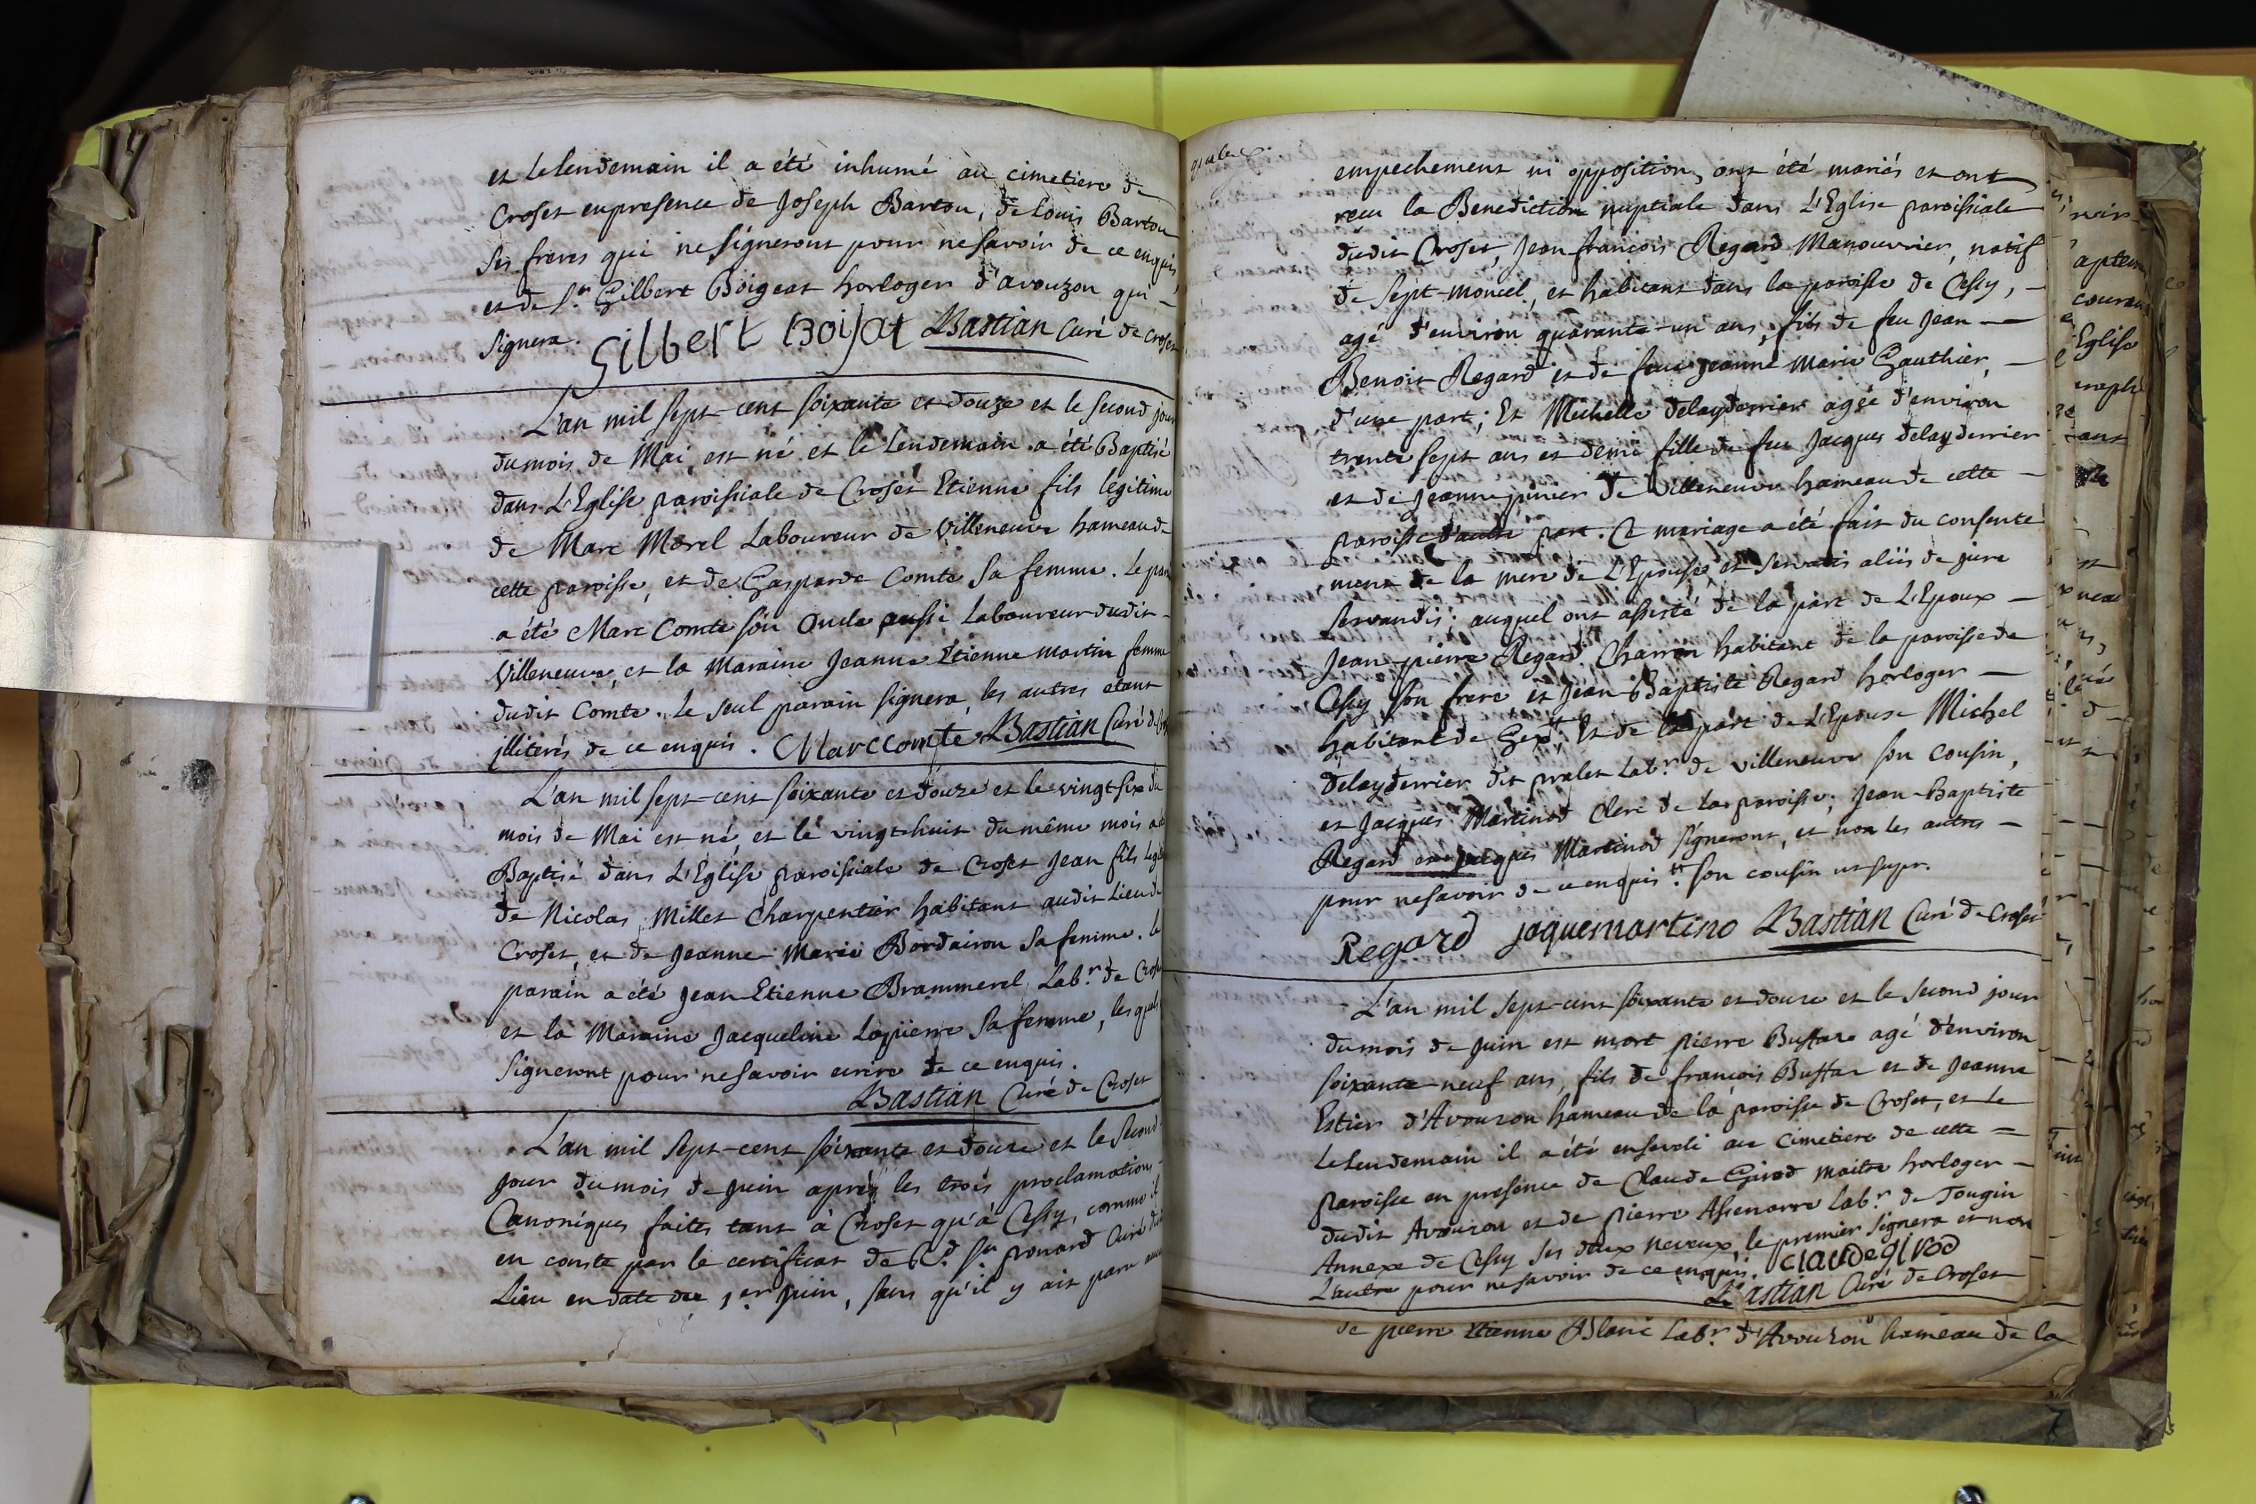 et le lendemain il a été inhumé au cimetiere de
Croset en presence de Joseph Barton, de Louis Barton
ses freres qui ne signeront pour ne savoir de ce enquis,
et de Sr. Gilbert Boigeat horloger d'avouzon qui -
signera. Gilbert Boijat Bastian Curé de Croset
L'an mil sept-cent soixante et douze et le second jour
du mois de Mai est né et le Lendemain a été Baptisé
dans L'Eglise paroissiale de Croset Etienne fils legitime
de Marc Morel Laboureur de Villeneuve hameau de
cette paroisse, et de Gasparde Comte sa femme. Le parain
a été Marc Comte son Oncle aussi Laboureur dudit -
Villeneuve, et la Maraine Jeanne Etienne Martin femme
dudit Comte. Le seul parain signera, les autres etant
illiterés de ce enquis. Marc Comte Bastian Curé de Croset
L'an mil sept-cent soixante et douze et le vingt-six du
mois de Mai est né, et le vingt-huit du même mois a été
Baptisé dans L'Eglise paroissiale de Croset Jean fils legit
de Nicolas Millet Charpentier habitant audit Lieu de
Croset, et de Jeanne Marie Bordairon sa femme. Le
parain a été Jean Etienne Brammerel Labr. de Croset
et la Maraine Jacqueline Lapierre sa femme, lesquels
signeront pour ne savoir ecrire de ce enquis.
Bastian Curé de Croset
L'an mil sept-cent soixante et douze et le second
jour du mois de Juin aprés les trois proclamations
Canoniques faites tant à Croset qu'à Cessy, comme il
en conste par le certificat de Rd. Sr. ponard Curé dudit
Lieu en date du 1er Juin, sans qu'il y ait paru aucun
empechement ni opposition, ont été mariés et ont
reçu la Benediction nuptiale dans L'Eglise paroissiale
dudit Croset, Jean françois Regard Manouvrier, natif
de Sept-moncel, et habitant dans la paroisse de Cessy, -
agé d'environ quarante-un ans, fils de feu Jean -
Benoit Regard et de feue Jeanne Marie Gauthier, -
d'une part; Et Michelle delayderrier agée d'environ
trente sept ans et demie fille de feu Jacques delayderrier
et de Jeanne de Villeneuve hameau de cette -
paroisse d'autre part. Ce mariage a été fait du consente
ment de la mere de L'Epouse, et servatis aliis de jure
servandis: auquel ont assisté de la part de L'Epoux -
Jean-pierre Regard Charron habitant de la paroisse de
Cessy son frere et Jean-Baptiste Regard horloger -
habitant de Gex #. Et de la part de L'Epouse Michel
delayderrier dit pralet Labr. de villeneuve son cousin,
et Jacques Martinod Clerc de la paroisse; Jean-Baptiste
Regard et Jacques Martinod signeront, et non les autres -
pour ne savoir de ce enquis. # son cousin ut supr.
Regard jaquemartino Bastian Curé de Croset
L'an mil sept-cent soixante et douze et le second jour
du mois de Juin est mort pierre Buffar agé d'environ
soixante-neuf ans, fils de francois Buffar et de Jeanne
Estier d'Avouzon hameau de la paroisse de Croset, et le
Lelendemain il a été enseveli au Cimetiere de cette =
paroisse en presence de Claude Girod maitre horloger -
dudit Avouzon et de pierre Labr. de Tougin
Annexe de Cessy ses deux neveux, le premier signera et non
L'autre pour ne savoir de ce enquis. Claudegirod
Bastian Curé de Croset
de pierre Etienne Blanc Labr. d'Avouzon hameau de la